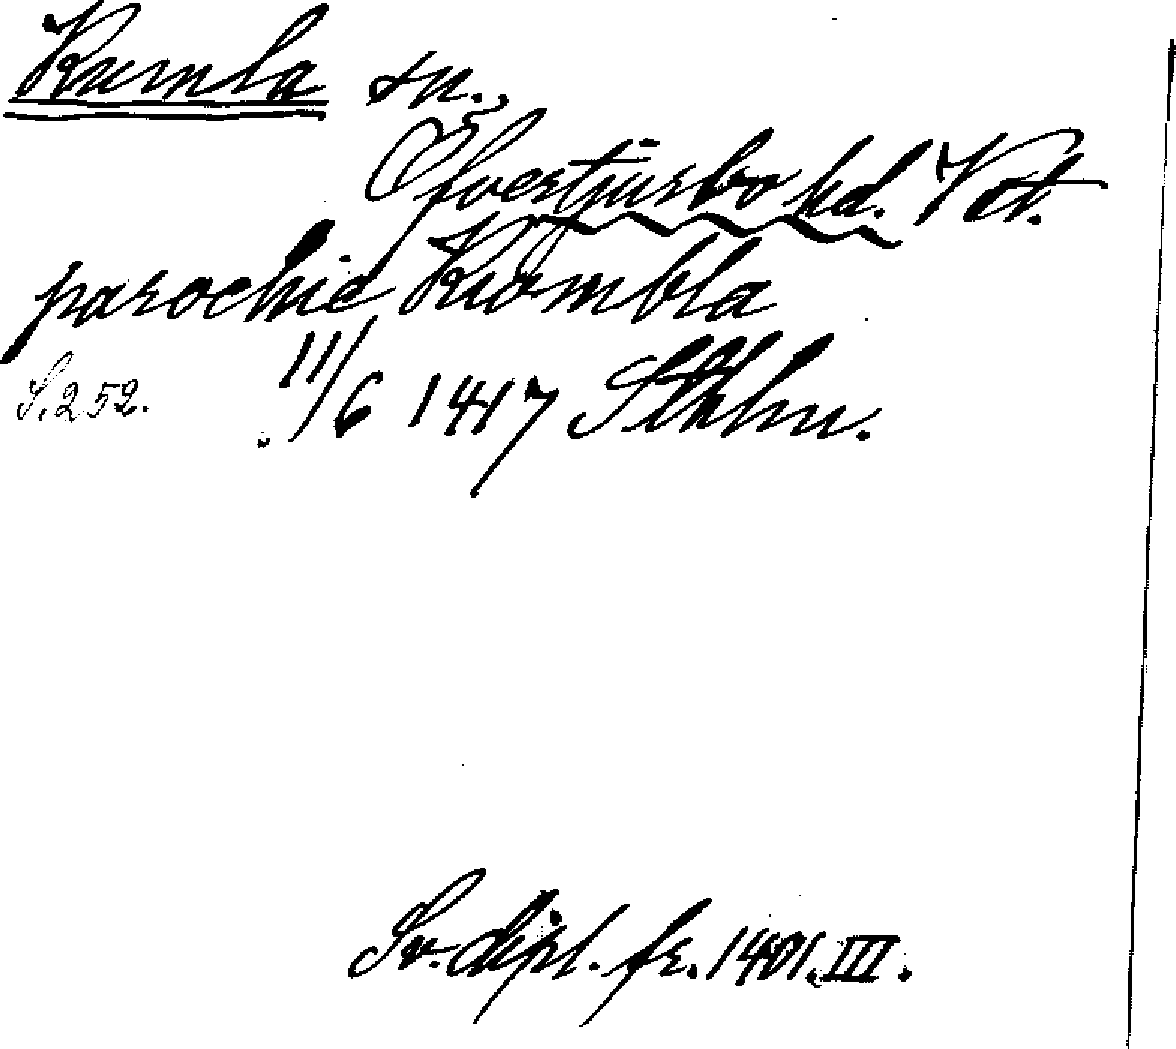 Kumla sn.,
Öfvertjurbo hd. Vst.
parochie Kwmbla
S. 252. 11/6 1417 Sthlm.
Sv. dipl. fr. 1401. III.